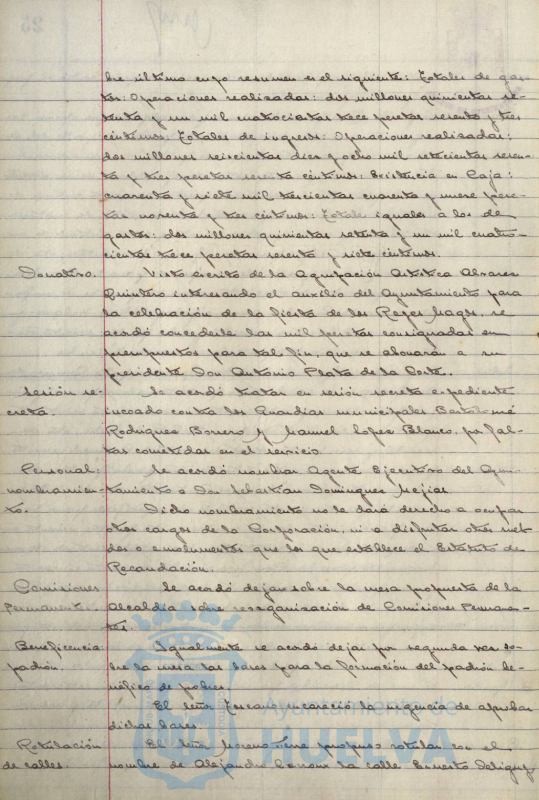 bre último cuyo resumen es el siguiente: Totales de gas-
tos: Operaciones realizadas: dos millones quinientas se-
tenta y un mil cuatrocientas trece pesetas sesenta y tres
céntimos: Totales de ingresos: Operaciones realizadas:
dos millones seiscientas diez y ocho mil setecientas sesen-
ta y tres pesetas céntimos: Existencia en Caja:
cuarenta y siete mil trescientas cuarenta y nueve pese-
tas noventa y tres céntimos: Totales iguales a los de
gastos: dos millones quinientas setenta y un mil cuatro-
cientas trece pesetas sesenta y siete céntimos.
Donativo. Visto escrito de la Agrupación Artística Alvarez
Quintero interesando el auxilio del Ayuntamiento para
la celebración de la fiesta de los Reyes Magos, se
acordó concederle las mil pesetas consignadas en
presupuestos para tal fin, que se abonarán a su
presidente Don Antonio Plata de la Corte.
Sesión se- Se acordó tratar en sesión secreta expediente
creta. incoado contra los Guardias municipales Bartolomé
Rodríguez Borrero y Manuel López Blanco, por fal-
tas cometidas en el servicio.
Personal: Se acordó nombrar Agente Ejecutivo del Ayun-
nombramien- tamiento a Don Sebastian Dominguez Mejias.
to. Dicho nombramiento no le dará derecho a ocupar
otros cargos de la Corporación, ni a disfrutar otros suel-
dos o emolumentos que los que establece el Estatuto de
Recaudación.
Comisiones Se acordó dejar sobre la mesa propuesta de la
Permanent. Alcaldía sobre reorganización de Comisiones Permanen-
tes.
Beneficencia: Igualmente se acordó dejar por segunda vez so-
padrón. bre la mesa las bases para la formación del padrón be-
néfico de pobres.
El señor Toscano encareció la urgencia de aprobar
dichas bases.
Rotulación El señor Moreno propuso rotular con el
de calles. nombre de Alejandro Lerroux la calle Ernesto Deligny
Ayuntamiento de
HUELVA
25